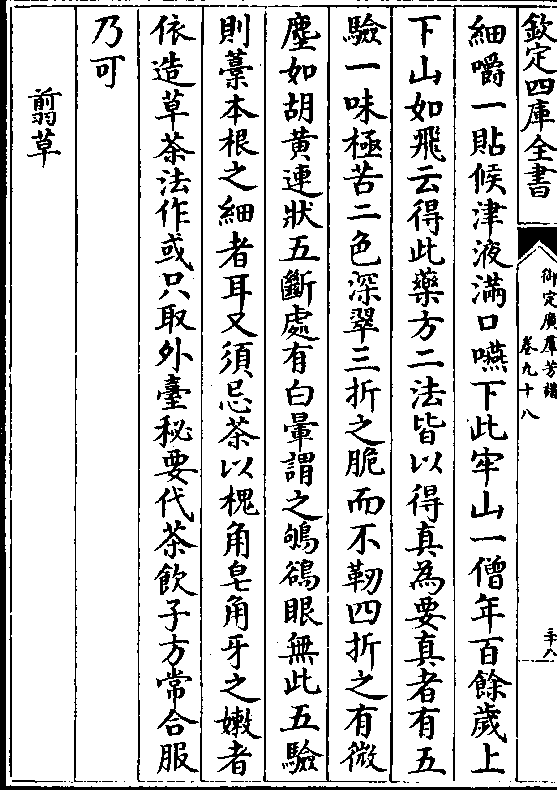 欽定四庫全書
御定廣羣芳譜
卷九十八
細嚼一貼候津液滿口嚥下此牢山一僧年百餘歲上
下山如飛云得此藥方二法皆以得真為要真者有五
驗一味極苦二色深翠三折之脆而不韌四折之有微
塵如胡黄連狀五斷處有白暈謂之鴝鵒眼無此五驗
則藁本根之細者耳又須忌茶以槐角皂角牙之嫩者
依造草茶法作或只取外臺秘要代茶飲子方常合服
乃可
翦草